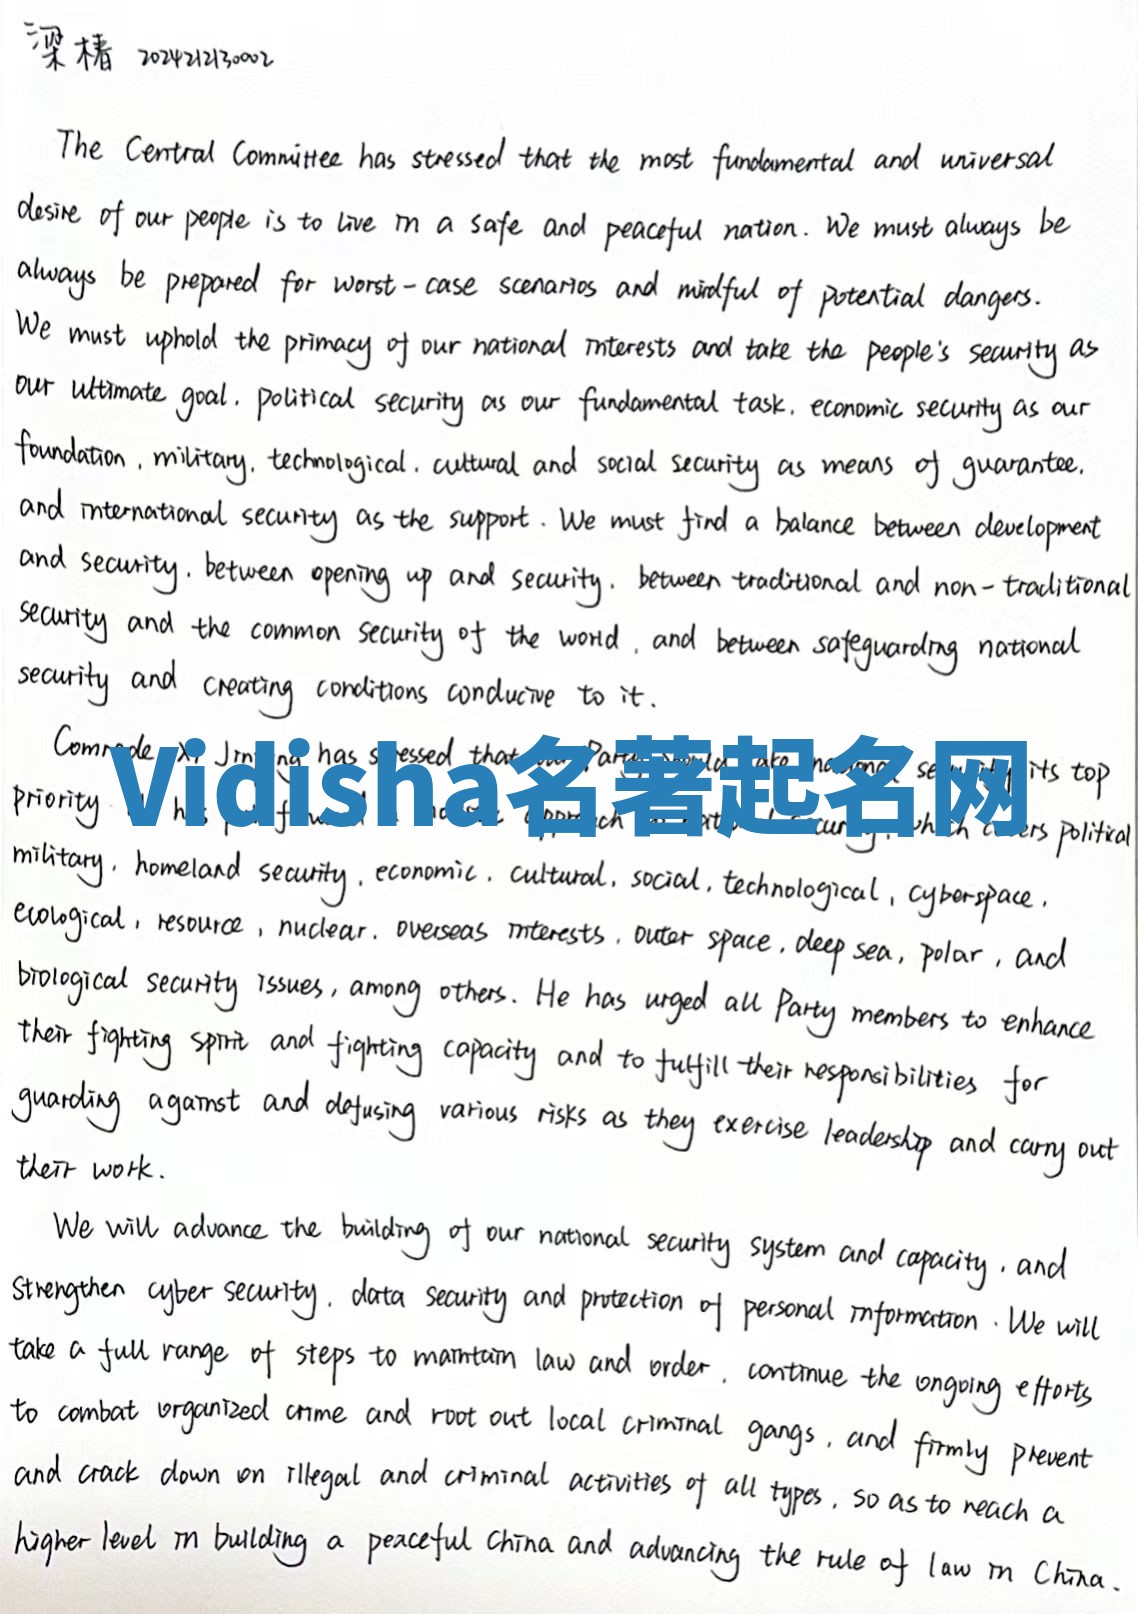 梁椿 2024212130002
The Central Committee has stressed that the most fundamental and universal
desire of our people is to live in a safe and peaceful nation. We must always be
always be prepared for worst-case scenarios and mindful of potential dangers.
We must uphold the primacy of our national interests and take the people's security as
our ultimate goal, political security as our fundamental task, economic security as our
foundation, military, technological, cultural and social security as means of guarantee,
and international security as the support. We must find a balance between development
and security, between opening up and security, between traditional and non-traditional
security and the common security of the world, and between safeguarding national
security and creating conditions conducive to it.
Comrade Xi Jinping has stressed that Party national security its top
Vidisha名著起名网
priority has approach security, which covers political
military, homeland security, economic, cultural, social, technological, cyberspace,
ecological, resource, nuclear, overseas interests, outer space, deep sea, polar, and
biological security issues, among others. He has urged all Party members to enhance
their fighting spirit and fighting capacity and to fulfill their responsibilities for
guarding against and defusing various risks as they exercise leadership and carry out
their work.
We will advance the building of our national security system and capacity, and
strengthen cyber security, data security and protection of personal information. We will
take a full range of steps to maintain law and order, continue the ongoing efforts
to combat organized crime and root out local criminal gangs, and firmly prevent
and crack down on illegal and criminal activities of all types, so as to reach a
higher level in building a peaceful China and advancing the rule of law in China.